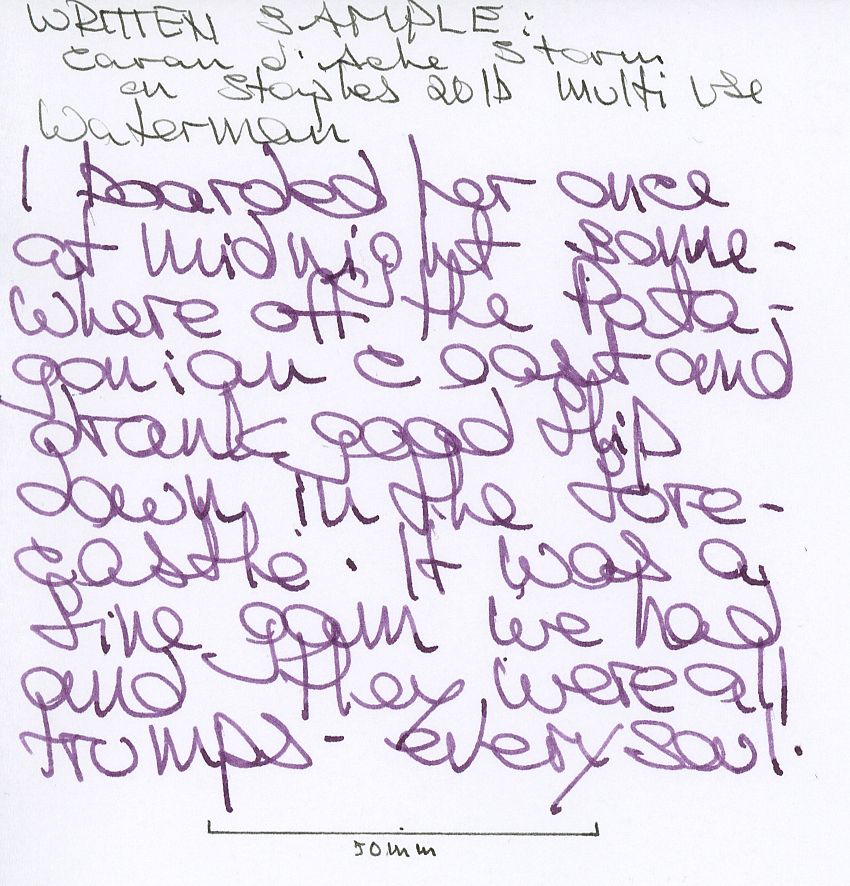 WRITTEN SAMPLE:
Caran d'Ache Storm
on Staples 20lb Multi Use
Waterman
I boarded her once
at midnight some-
where off the Pata-
gonian coast and
drank good flip
down in the fore-
castle. It was a
fine gam we had
and they were all
trumps - every soul.
50mm